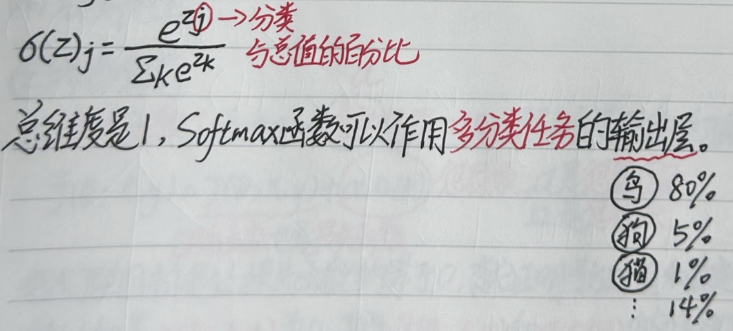 σ(z)j = e^zj / Σk e^zk → 分类
与总值的百分比
总维度是1，Softmax函数可以作用多分类任务的输出层。
鸟 80%
狗 5%
猫 1%
⋮ 14%